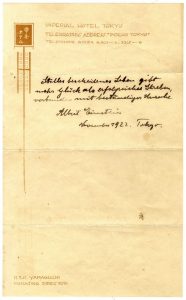 IMPERIAL HOTEL, TOKYO
TELEGRAPHIC ADDRESS "IMPHO TOKYO"
Stilles bescheidenes Leben gibt
mehr Glück als erfolgreiches Streben,
verbunden mit beständiger Unruhe.
Albert Einstein
November 1922. Tokyo.
YAMAGUCHI
MANAGING DIRECTOR